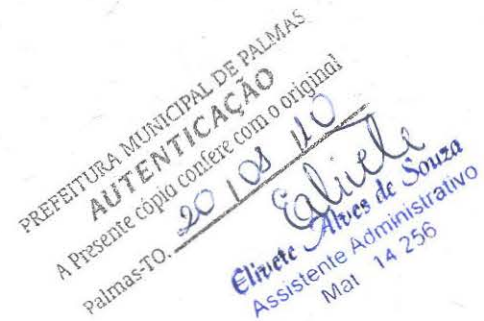 PREFEITURA MUNICIPAL DE PALMAS
AUTENTICAÇÃO
A Presente cópia confere com o original
Palmas-TO. 20 / 08 / 10
Elivete
Elivete Alves de Souza
Assistente Administrativo
Mat 14 256